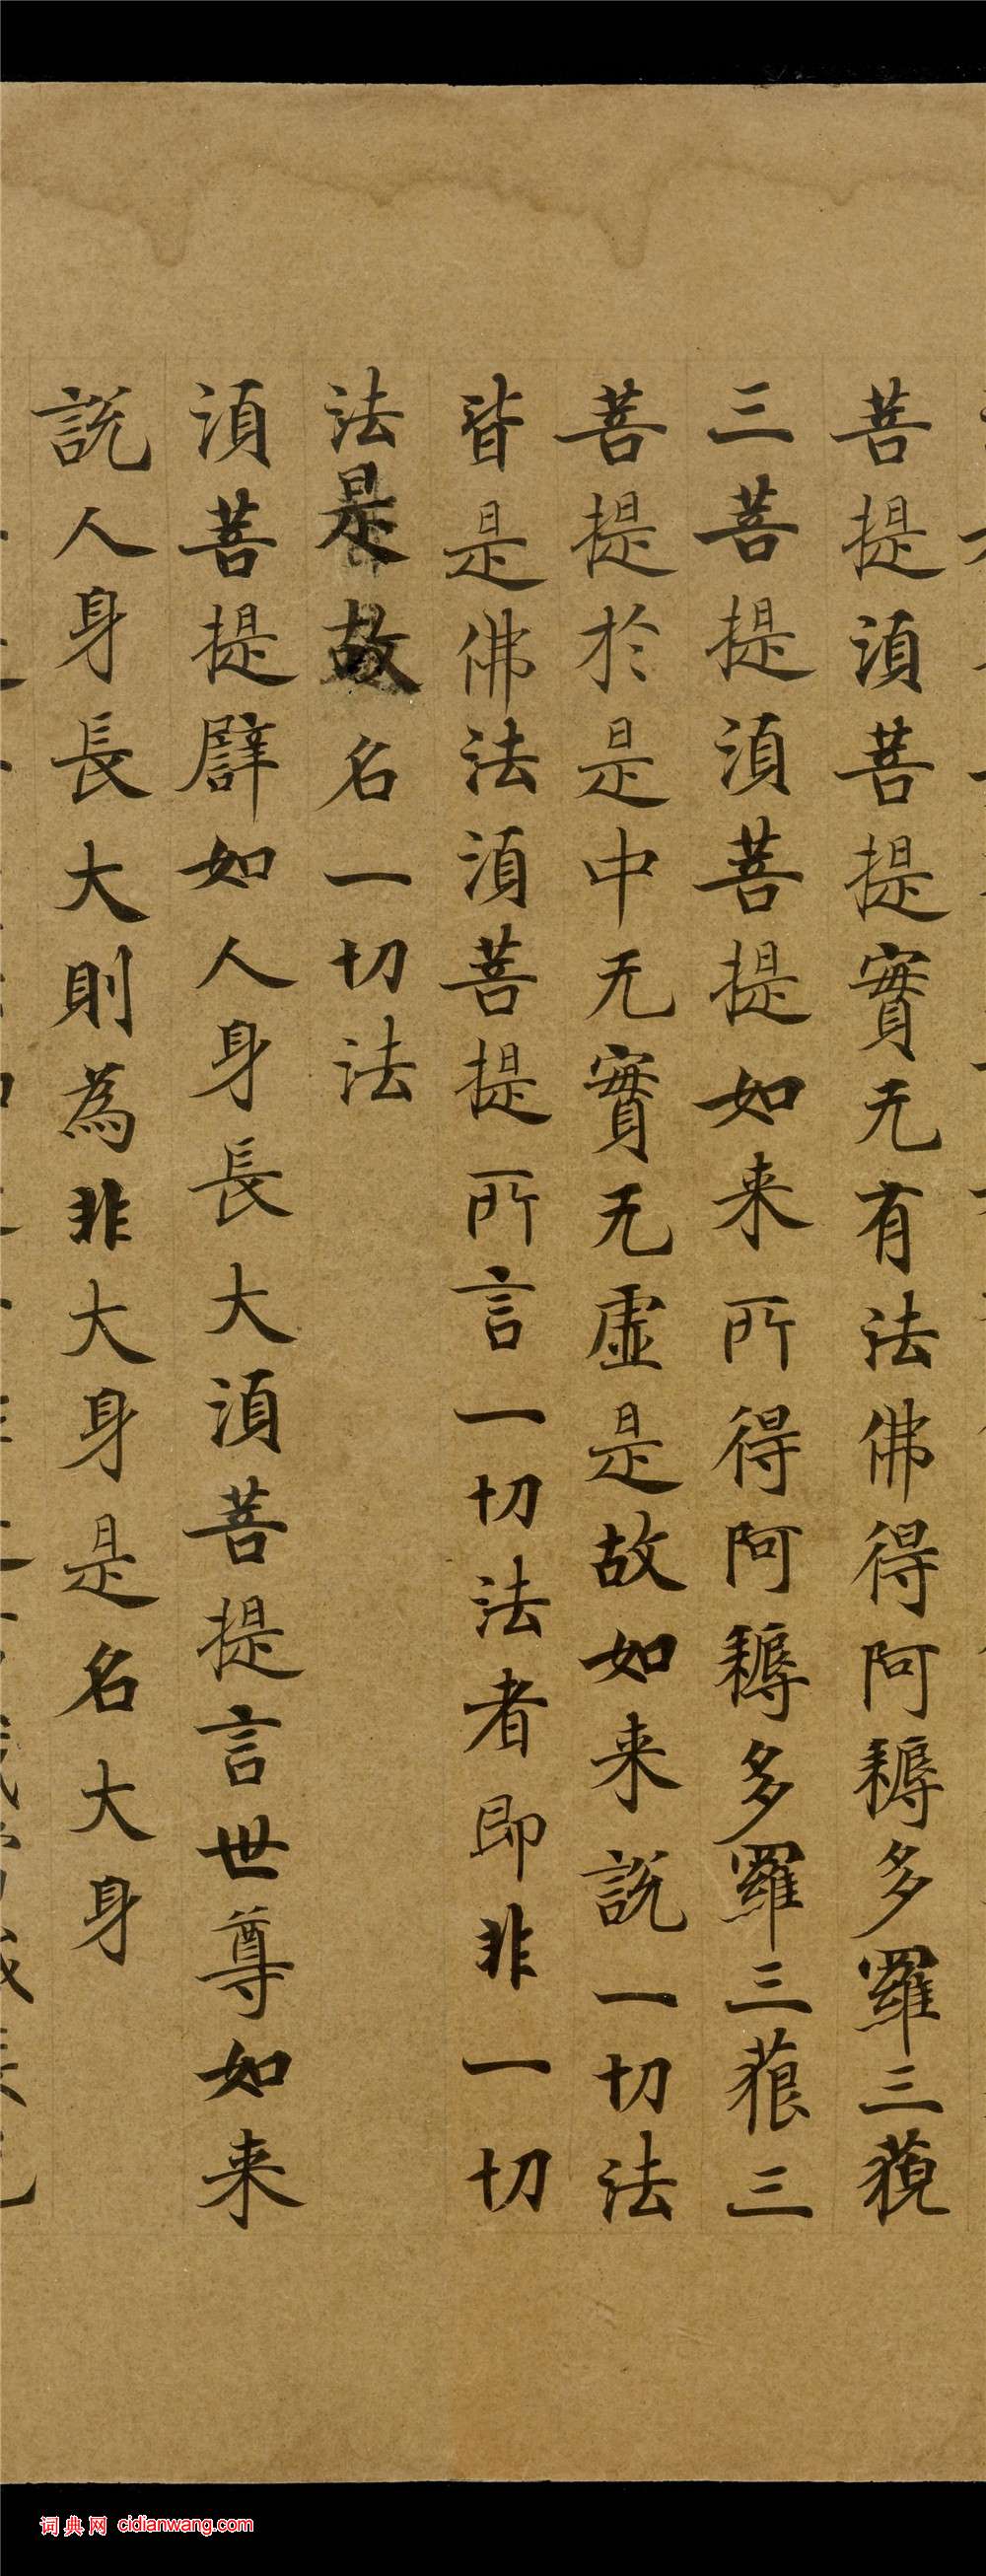 菩提須菩提實无有法佛得阿耨多羅三藐
三菩提須菩提如来所得阿耨多羅三藐三
菩提於是中无實无虛是故如来説一切法
皆是佛法須菩提所言一切法者即非一切
法是故名一切法
須菩提譬如人身長大須菩提言世尊如来
説人身長大則為非大身是名大身
词典网 cidianwang.com